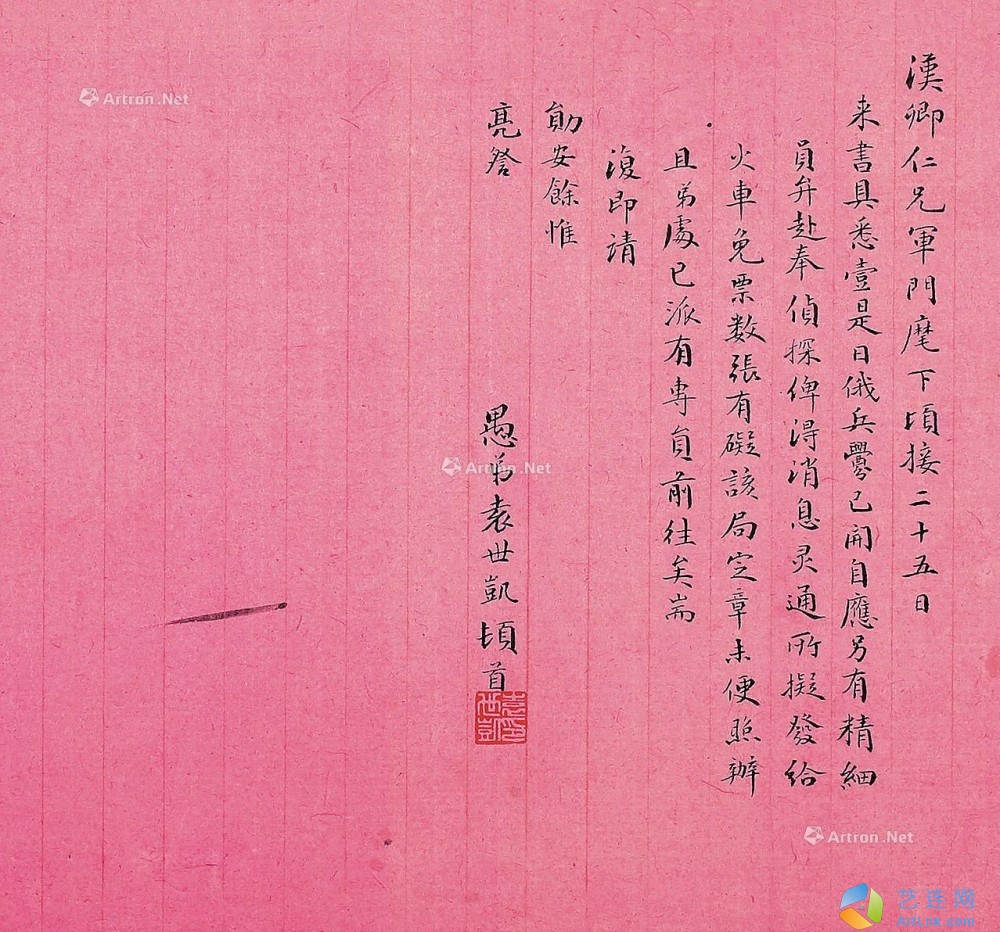 漢卿仁兄軍門麾下頃接二十五日
来書具悉壹是日俄兵釁已開自應另有精細
員弁赴奉偵探俾淂消息灵通所擬發给
火車免票数張有礙該局定章未便照辦
且弟處已派有專員前往矣耑
復即請
勛安餘惟
亮詧
愚弟袁世凱頓首
袁世凱印
Artron.Net
Artron.Net
Artron.Net
艺连网
ArtLnk.com